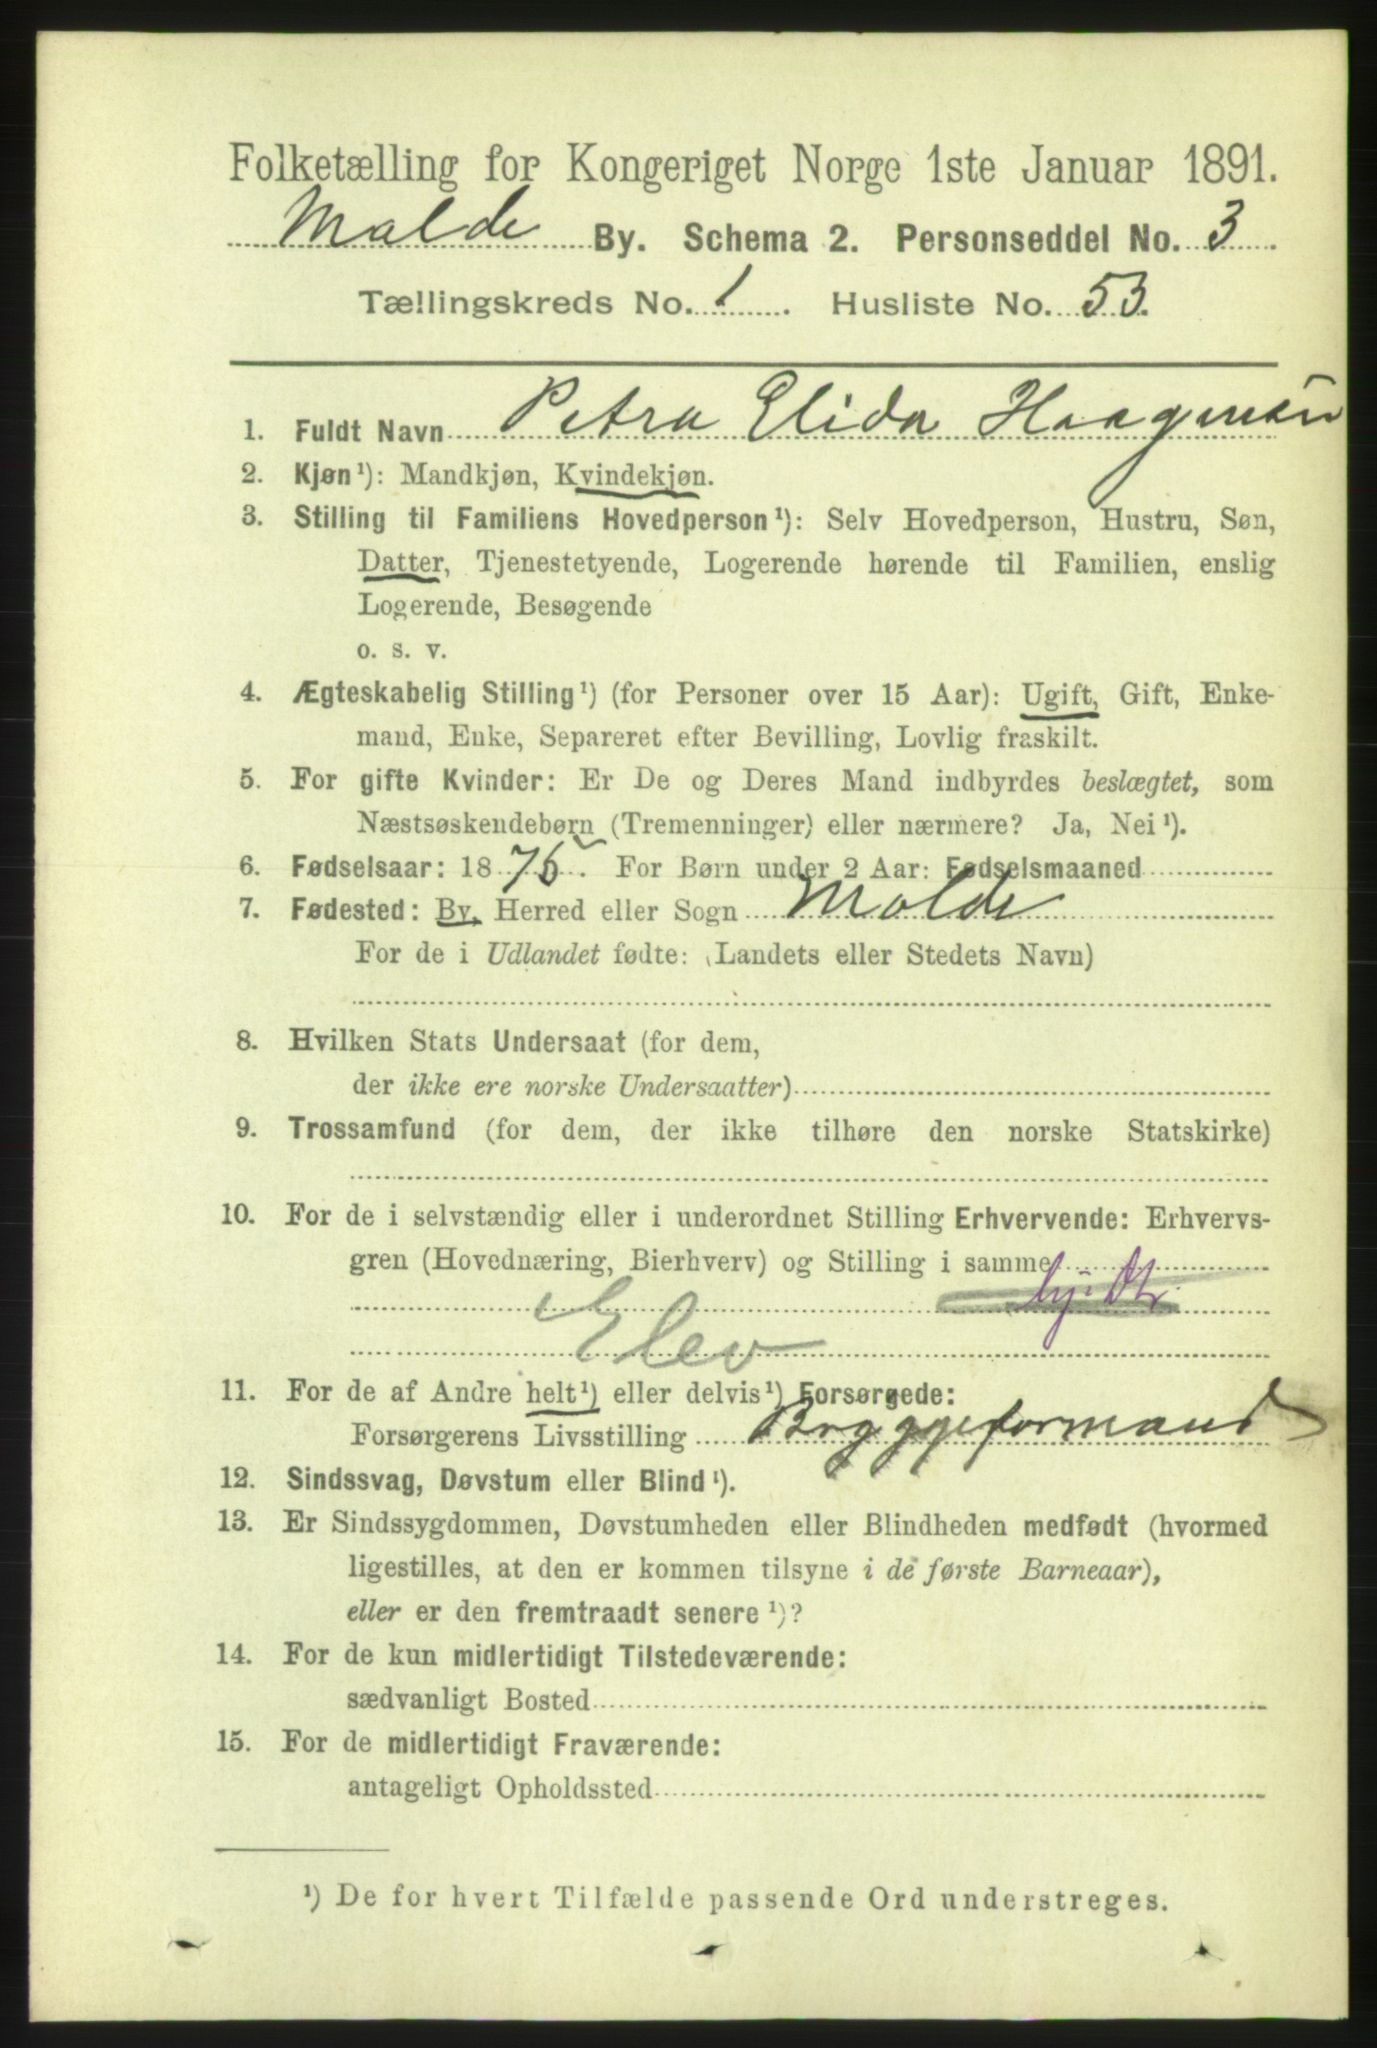 Folketælling for Kongeriget Norge 1ste Januar 1891.
Molde By. Schema 2. Personseddel No. 3
Tællingskreds No. 1. Husliste No. 53.
1. Fuldt Navn Petra Elida
2. Kjøn¹): Mandkjøn, Kvindekjøn.
3. Stilling til Familiens Hovedperson¹): Selv Hovedperson, Hustru, Søn,
Datter, Tjenestetyende, Logerende hørende til Familien, enslig
Logerende, Besøgende
o. s. v.
4. Ægteskabelig Stilling¹) (for Personer over 15 Aar): Ugift, Gift, Enke-
mand, Enke, Separeret efter Bevilling, Lovlig fraskilt.
5. For gifte Kvinder: Er De og Deres Mand indbyrdes beslægtet, som
Næstsøskendebørn (Tremenninger) eller nærmere? Ja, Nei¹).
6. Fødselsaar: 1875. For Børn under 2 Aar: Fødselsmaaned
7. Fødested: By, Herred eller Sogn Molde
For de i Udlandet fødte: (Landets eller Stedets Navn)
8. Hvilken Stats Undersaat (for dem,
der ikke ere norske Undersaatter)
9. Trossamfund (for dem, der ikke tilhøre den norske Statskirke)
10. For de i selvstændig eller i underordnet Stilling Erhvervende: Erhvervs-
gren (Hovednæring, Bierhverv) og Stilling i samme
Elev
11. For de af Andre helt¹) eller delvis¹) Forsørgede:
Forsørgerens Livsstilling Bryggeformand
12. Sindssvag, Døvstum eller Blind¹).
13. Er Sindssygdommen, Døvstumheden eller Blindheden medfødt (hvormed
ligestilles, at den er kommen tilsyne i de første Barneaar),
eller er den fremtraadt senere¹)?
14. For de kun midlertidigt Tilstedeværende:
sædvanligt Bosted
15. For de midlertidigt Fraværende:
antageligt Opholdssted
¹) De for hvert Tilfælde passende Ord understreges.